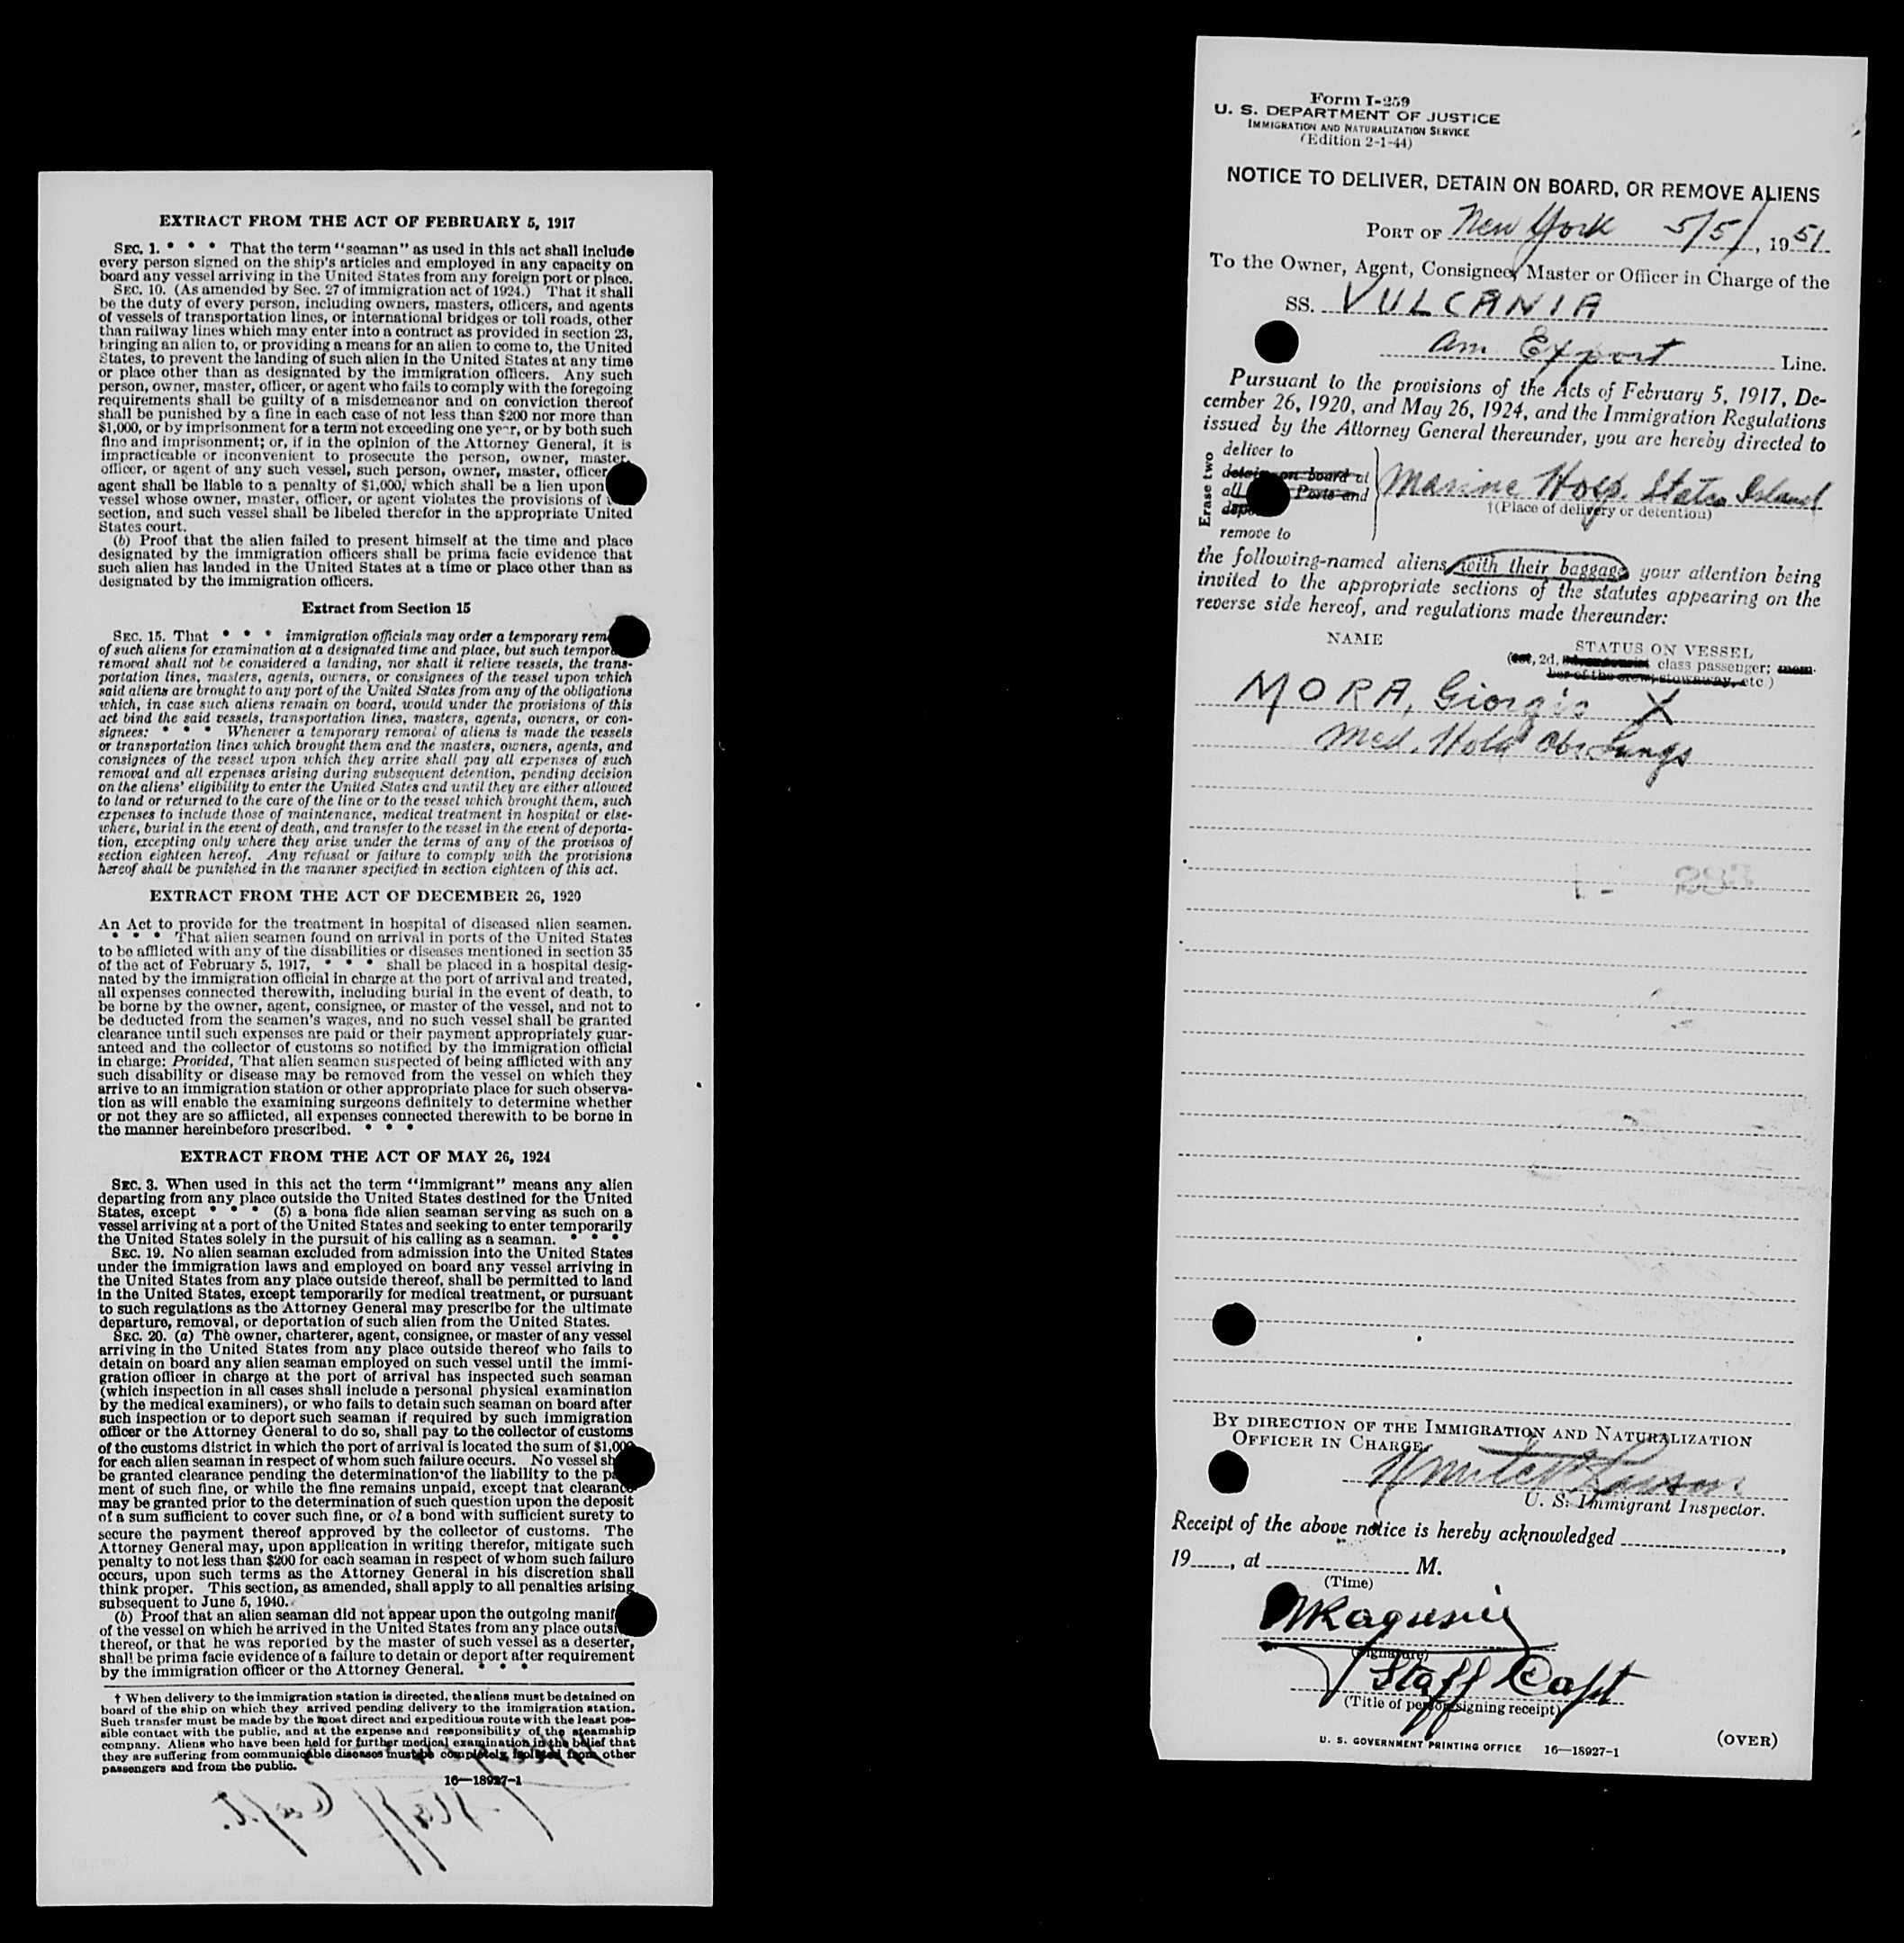 EXTRACT FROM THE ACT OF FEBRUARY 5, 1917
SEC. 1. * * * That the term "seaman" as used in this act shall include
every person signed on the ship's articles and employed in any capacity on
board any vessel arriving in the United States from any foreign port or place.
SEC. 10. (As amended by Sec. 27 of immigration act of 1924.) That it shall
be the duty of every person, including owners, masters, officers, and agents
of vessels of transportation lines, or international bridges or toll roads, other
than railway lines which may enter into a contract as provided in section 23,
bringing an alien to, or providing a means for an alien to come to, the United
States, to prevent the landing of such alien in the United States at any time
or place other than as designated by the immigration officers. Any such
person, owner, master, officer, or agent who fails to comply with the foregoing
requirements shall be guilty of a misdemeanor and on conviction thereof
shall be punished by a fine in each case of not less than $200 nor more than
$1,000, or by imprisonment for a term not exceeding one year, or by both such
fine and imprisonment; or, if in the opinion of the Attorney General, it is
impracticable or inconvenient to prosecute the person, owner, master,
officer, or agent of any such vessel, such person, owner, master, officer
agent shall be liable to a penalty of $1,000, which shall be a lien upon
vessel whose owner, master, officer, or agent violates the provisions of
section, and such vessel shall be libeled therefor in the appropriate United
States court.
(b) Proof that the alien failed to present himself at the time and place
designated by the immigration officers shall be prima facie evidence that
such alien has landed in the United States at a time or place other than as
designated by the immigration officers.
Extract from Section 15
SEC. 15. That * * * immigration officials may order a temporary rem
of such aliens for examination at a designated time and place, but such tempor
removal shall not be considered a landing, nor shall it relieve vessels, the trans-
portation lines, masters, agents, owners, or consignees of the vessel upon which
said aliens are brought to any port of the United States from any of the obligations
which, in case such aliens remain on board, would under the provisions of this
act bind the said vessels, transportation lines, masters, agents, owners, or con-
signees: * * * Whenever a temporary removal of aliens is made the vessels
or transportation lines which brought them and the masters, owners, agents, and
consignees of the vessel upon which they arrive shall pay all expenses of such
removal and all expenses arising during subsequent detention, pending decision
on the aliens' eligibility to enter the United States and until they are either allowed
to land or returned to the care of the line or to the vessel which brought them, such
expenses to include those of maintenance, medical treatment in hospital or else-
where, burial in the event of death, and transfer to the vessel in the event of deporta-
tion, excepting only where they arise under the terms of any of the provisos of
section eighteen hereof. Any refusal or failure to comply with the provisions
hereof shall be punished in the manner specified in section eighteen of this act.
EXTRACT FROM THE ACT OF DECEMBER 26, 1920
An Act to provide for the treatment in hospital of diseased alien seamen.
* * * That alien seamen found on arrival in ports of the United States
to be afflicted with any of the disabilities or diseases mentioned in section 35
of the act of February 5, 1917, * * * shall be placed in a hospital desig-
nated by the immigration official in charge at the port of arrival and treated,
all expenses connected therewith, including burial in the event of death, to
be borne by the owner, agent, consignee, or master of the vessel, and not to
be deducted from the seamen's wages, and no such vessel shall be granted
clearance until such expenses are paid or their payment appropriately guar-
anteed and the collector of customs so notified by the immigration official
in charge: Provided, That alien seamen suspected of being afflicted with any
such disability or disease may be removed from the vessel on which they
arrive to an immigration station or other appropriate place for such observa-
tion as will enable the examining surgeons definitely to determine whether
or not they are so afflicted, all expenses connected therewith to be borne in
the manner hereinbefore prescribed. * * *
EXTRACT FROM THE ACT OF MAY 26, 1924
SEC. 3. When used in this act the term "immigrant" means any alien
departing from any place outside the United States destined for the United
States, except * * * (5) a bona fide alien seaman serving as such on a
vessel arriving at a port of the United States and seeking to enter temporarily
the United States solely in the pursuit of his calling as a seaman. * * *
SEC. 19. No alien seaman excluded from admission into the United States
under the immigration laws and employed on board any vessel arriving in
the United States from any place outside thereof, shall be permitted to land
in the United States, except temporarily for medical treatment, or pursuant
to such regulations as the Attorney General may prescribe for the ultimate
departure, removal, or deportation of such alien from the United States.
SEC. 20. (a) The owner, charterer, agent, consignee, or master of any vessel
arriving in the United States from any place outside thereof who fails to
detain on board any alien seaman employed on such vessel until the immi-
gration officer in charge at the port of arrival has inspected such seaman
(which inspection in all cases shall include a personal physical examination
by the medical examiners), or who fails to detain such seaman on board after
such inspection or to deport such seaman if required by such immigration
officer or the Attorney General to do so, shall pay to the collector of customs
of the customs district in which the port of arrival is located the sum of $1,000
for each alien seaman in respect of whom such failure occurs. No vessel sh
be granted clearance pending the determination of the liability to the p
ment of such fine, or while the fine remains unpaid, except that clearance
may be granted prior to the determination of such question upon the deposit
of a sum sufficient to cover such fine, or of a bond with sufficient surety to
secure the payment thereof approved by the collector of customs. The
Attorney General may, upon application in writing therefor, mitigate such
penalty to not less than $200 for each seaman in respect of whom such failure
occurs, upon such terms as the Attorney General in his discretion shall
think proper. This section, as amended, shall apply to all penalties arising
subsequent to June 5, 1940.
(b) Proof that an alien seaman did not appear upon the outgoing manif
of the vessel on which he arrived in the United States from any place outsi
thereof, or that he was reported by the master of such vessel as a deserter,
shall be prima facie evidence of a failure to detain or deport after requirement
by the immigration officer or the Attorney General. * * *
† When delivery to the immigration station is directed, the aliens must be detained on
board of the ship on which they arrived pending delivery to the immigration station.
Such transfer must be made by the most direct and expeditious route with the least pos-
sible contact with the public, and at the expense and responsibility of the steamship
company. Aliens who have been held for further medical examination in the belief that
they are suffering from communicable diseases must be completely isolated from other
passengers and from the public.
16—18927-1
Form I-259
U. S. DEPARTMENT OF JUSTICE
IMMIGRATION AND NATURALIZATION SERVICE
(Edition 2-1-44)
NOTICE TO DELIVER, DETAIN ON BOARD, OR REMOVE ALIENS
PORT OF New York 5/5/, 1951
To the Owner, Agent, Consignee, Master or Officer in Charge of the
SS. VULCANIA
Am Export Line.
Pursuant to the provisions of the Acts of February 5, 1917, De-
cember 26, 1920, and May 26, 1924, and the Immigration Regulations
issued by the Attorney General thereunder, you are hereby directed to
Erase two
deliver to
detain on board at
all Ports and
remove to
Marine Hosp. Staten Island
†(Place of delivery or detention)
the following-named aliens with their baggage your attention being
invited to the appropriate sections of the statutes appearing on the
reverse side hereof, and regulations made thereunder:
NAME
STATUS ON VESSEL
(1st, 2d, class passenger; mem-
ber of the crew; stowaway, etc.)
MORA, Giorgio X
Med. Hold Obs Lungs
BY DIRECTION OF THE IMMIGRATION AND NATURALIZATION
OFFICER IN CHARGE.
U. S. Immigrant Inspector.
Receipt of the above notice is hereby acknowledged ,
19 , at M.
(Time)
(Signature)
Staff Capt
(Title of person signing receipt)
U. S. GOVERNMENT PRINTING OFFICE 16—18927-1
(OVER)